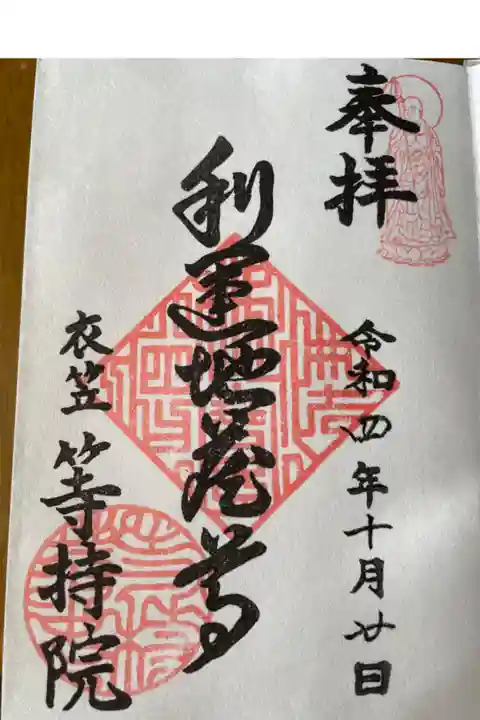 奉拝
令和四年十月廿日
利運地蔵尊
衣笠
等持院